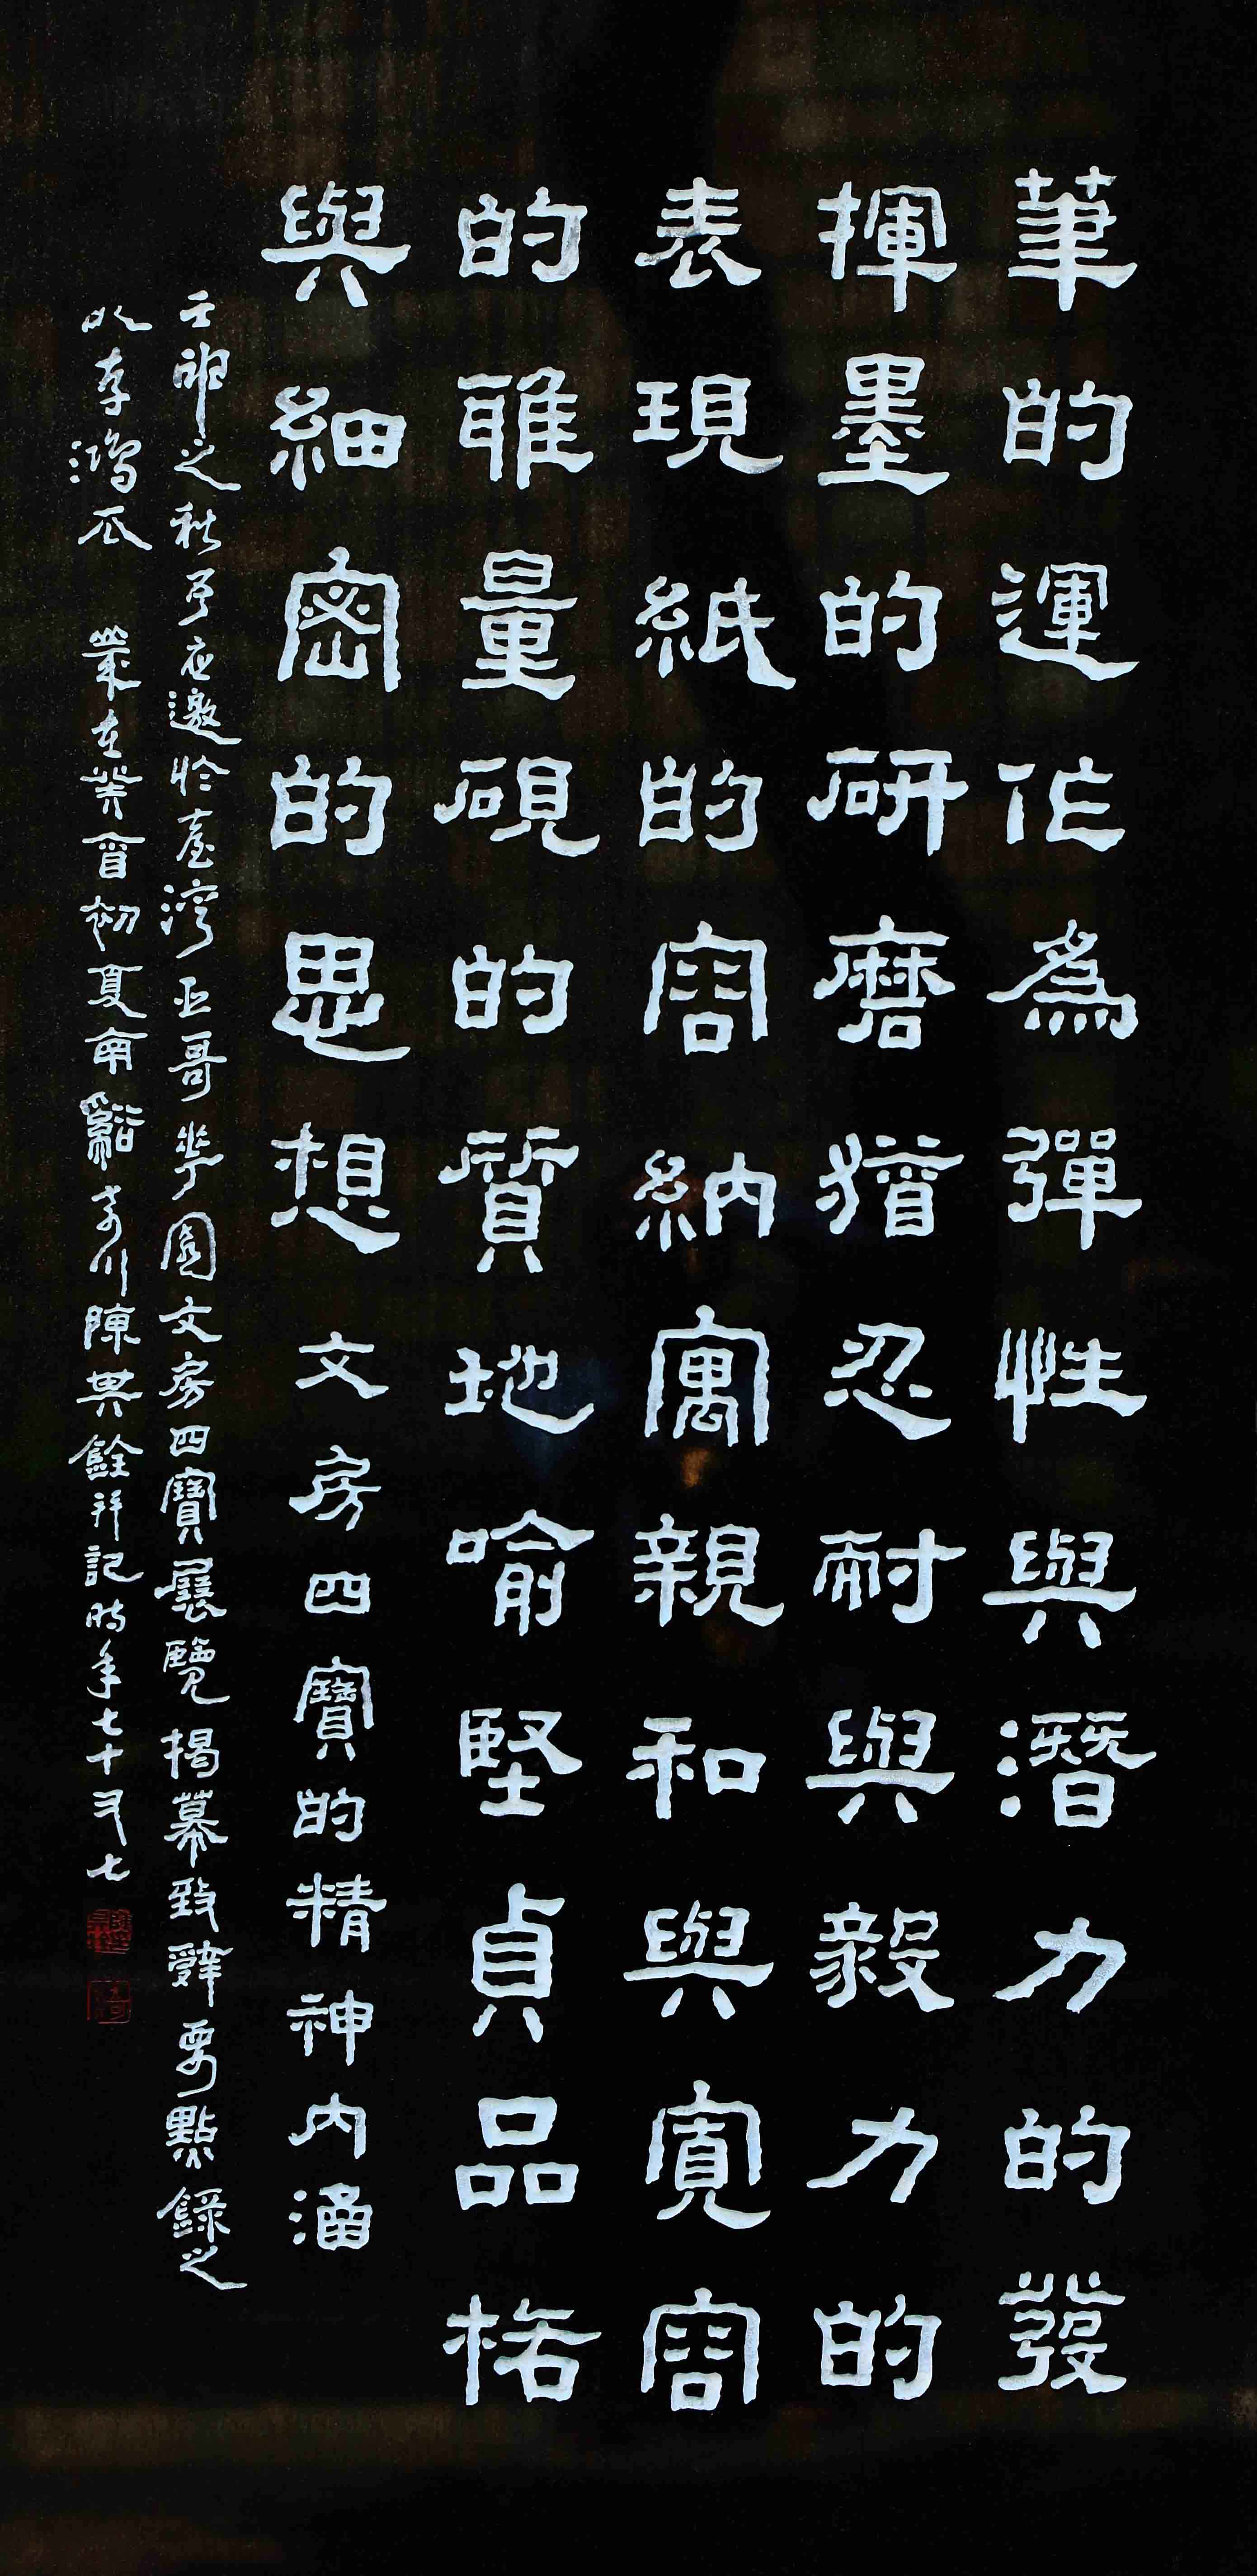 筆的運作為彈性與潛力的發
揮墨的研磨猶忍耐與毅力的
表現紙的容納寓親和與寬容
的雅量硯的質地喻堅貞品格
與細密的思想 文房四寶的精神內涵
壬申之秋予應邀於臺灣亞哥花園文房四寶展覽揭幕致辭要點錄之
以存鴻爪 歲在癸酉初夏南谿奇川陳其銓并記時年七十又七